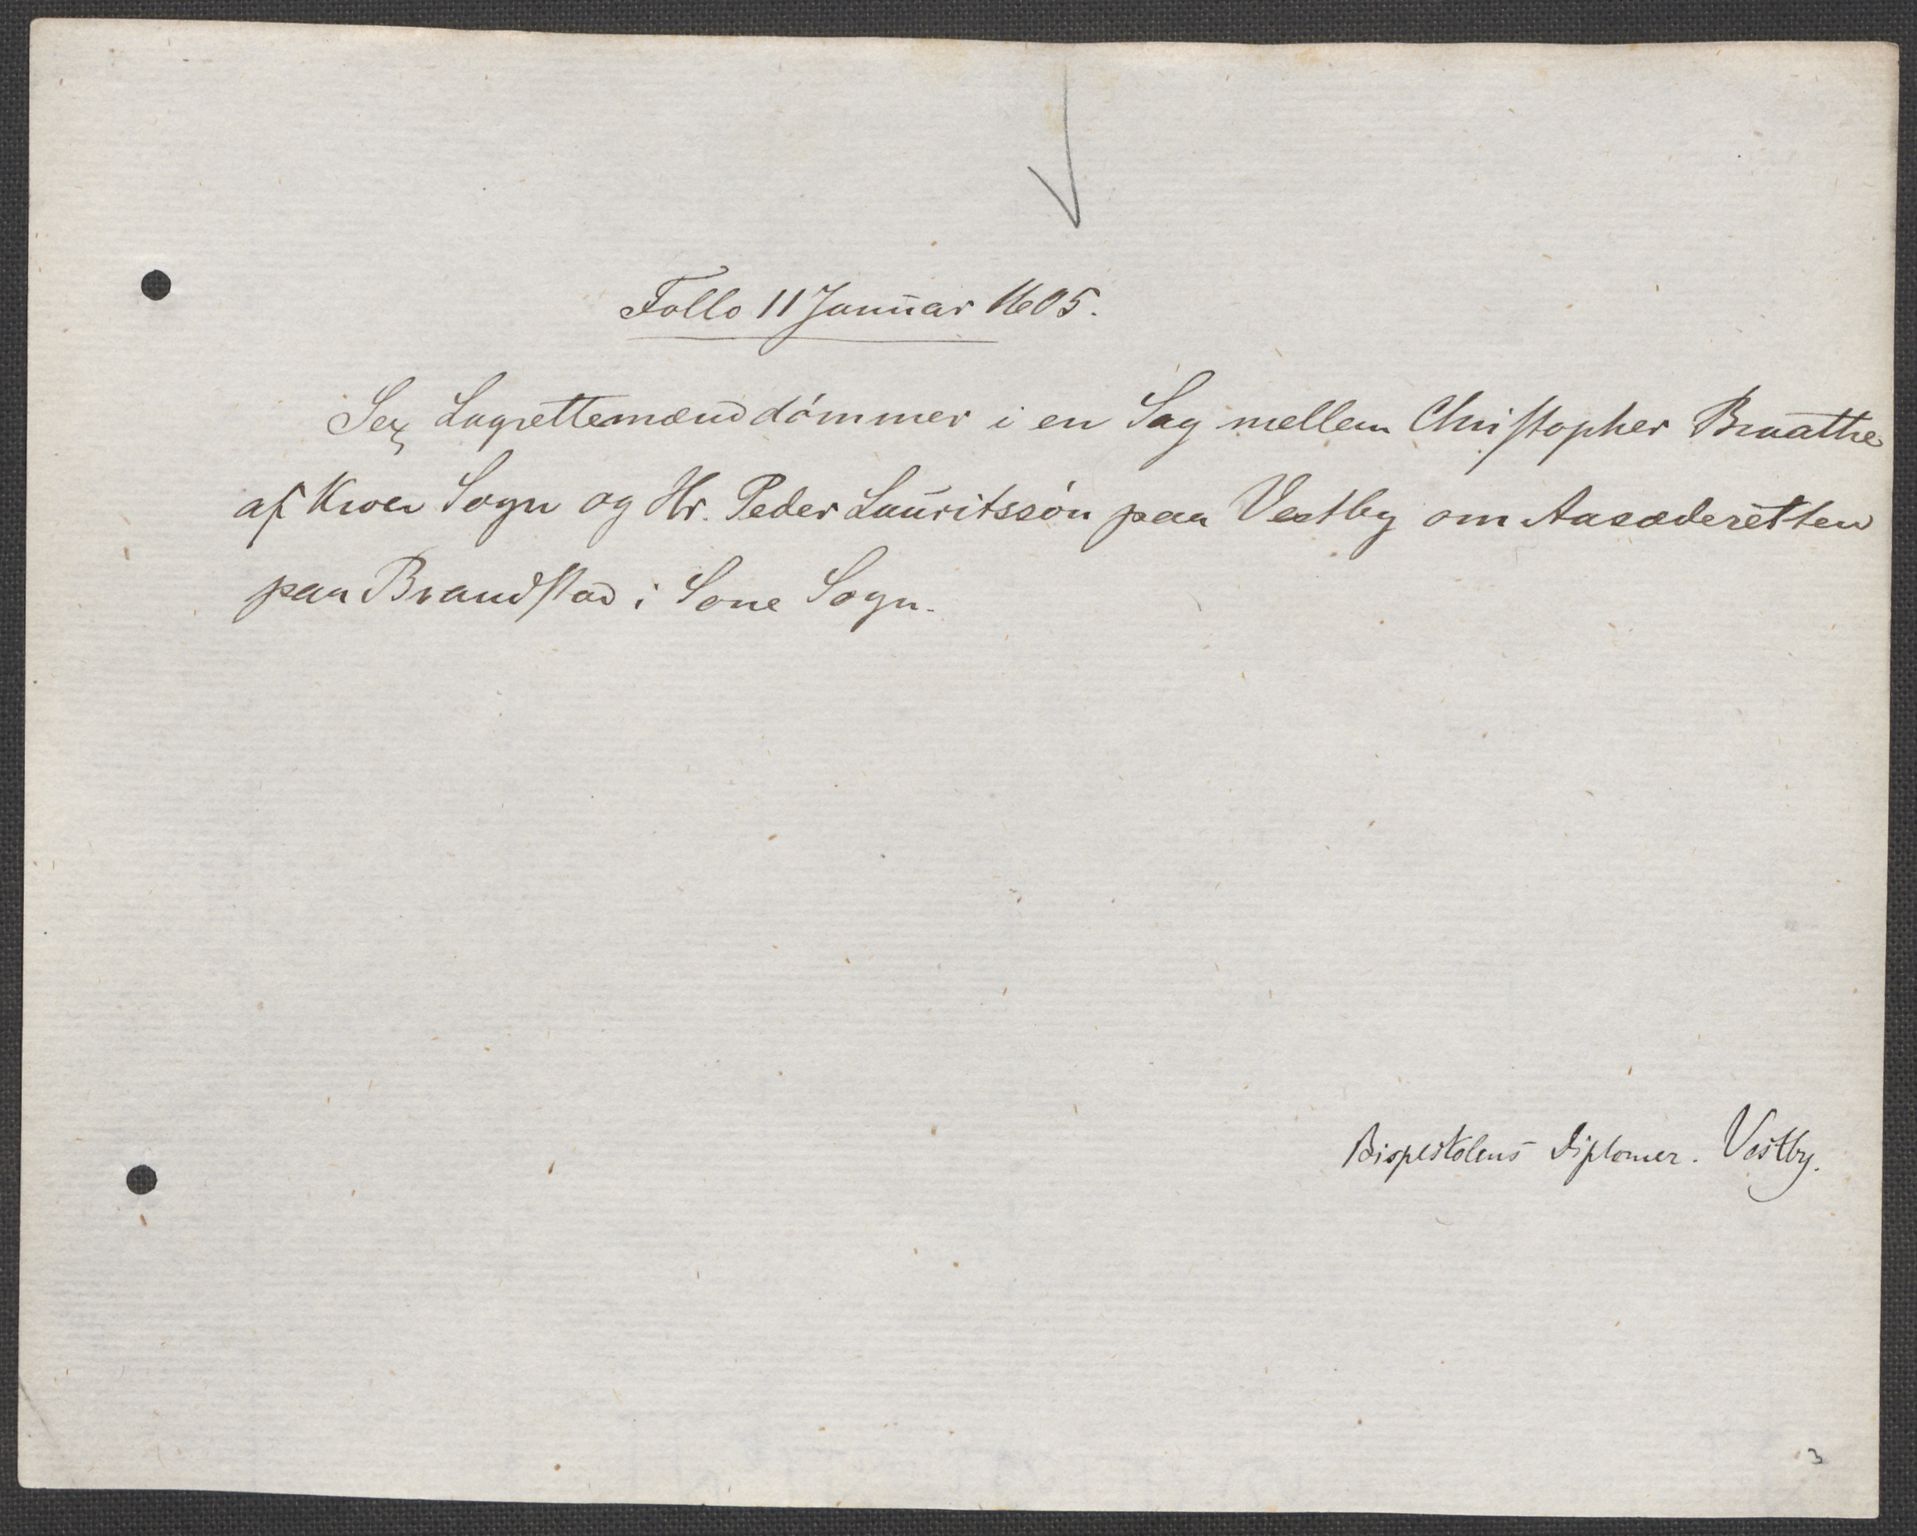 Follo 11 Januar 1605.
Sex Lagrettemænd dómmer i en Sag mellem Christopher Braathe
af Kroer Sogn og Hr. Peder Lauritssón paa Vestby om Aasæderetten
paa Brandstad i Sone Sogn.
Bispestolens Diplomer. Vestby.
3